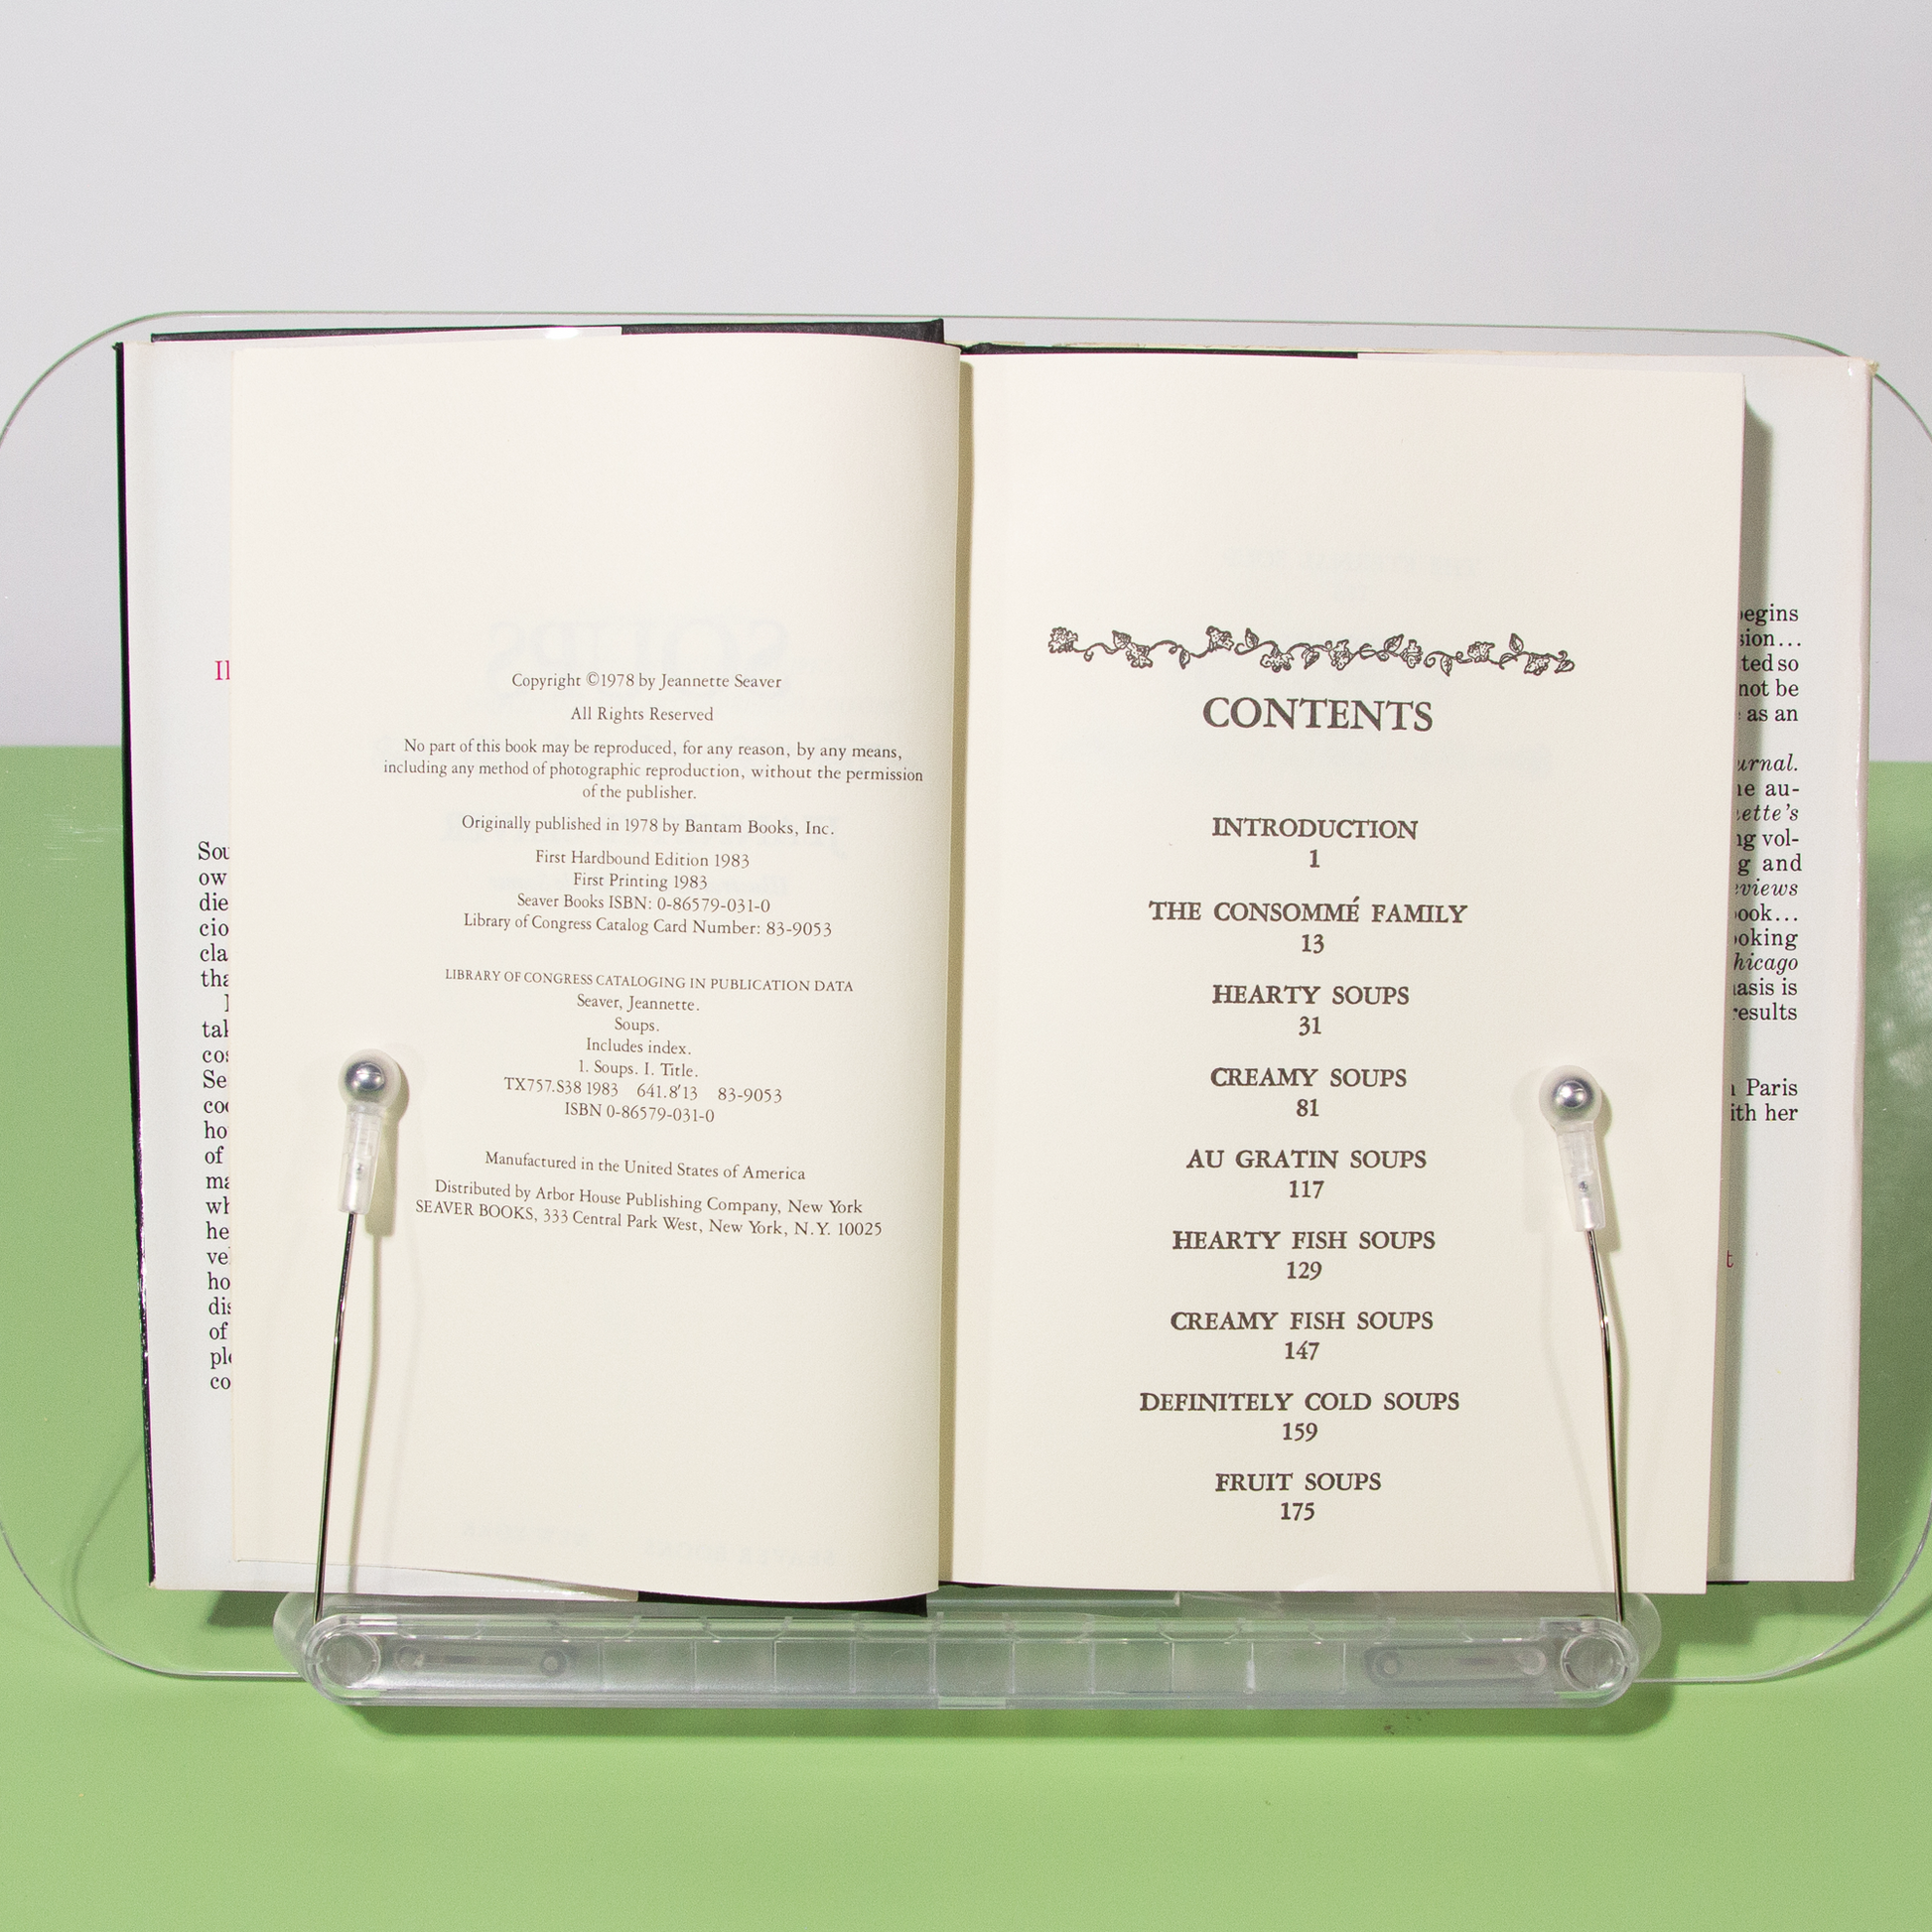 Copyright ©1978 by Jeannette Seaver
All Rights Reserved
No part of this book may be reproduced, for any reason, by any means,
including any method of photographic reproduction, without the permission
of the publisher.
Originally published in 1978 by Bantam Books, Inc.
First Hardbound Edition 1983
First Printing 1983
Seaver Books ISBN: 0-86579-031-0
Library of Congress Catalog Card Number: 83-9053
LIBRARY OF CONGRESS CATALOGING IN PUBLICATION DATA
Seaver, Jeannette.
Soups.
Includes index.
1. Soups. I. Title.
TX757.S38 1983 641.8′13 83-9053
ISBN 0-86579-031-0
Manufactured in the United States of America
Distributed by Arbor House Publishing Company, New York
SEAVER BOOKS, 333 Central Park West, New York, N.Y. 10025
CONTENTS
INTRODUCTION
1
THE CONSOMMÉ FAMILY
13
HEARTY SOUPS
31
CREAMY SOUPS
81
AU GRATIN SOUPS
117
HEARTY FISH SOUPS
129
CREAMY FISH SOUPS
147
DEFINITELY COLD SOUPS
159
FRUIT SOUPS
175
not be
as an
au-
vol-
and
is
Paris
her